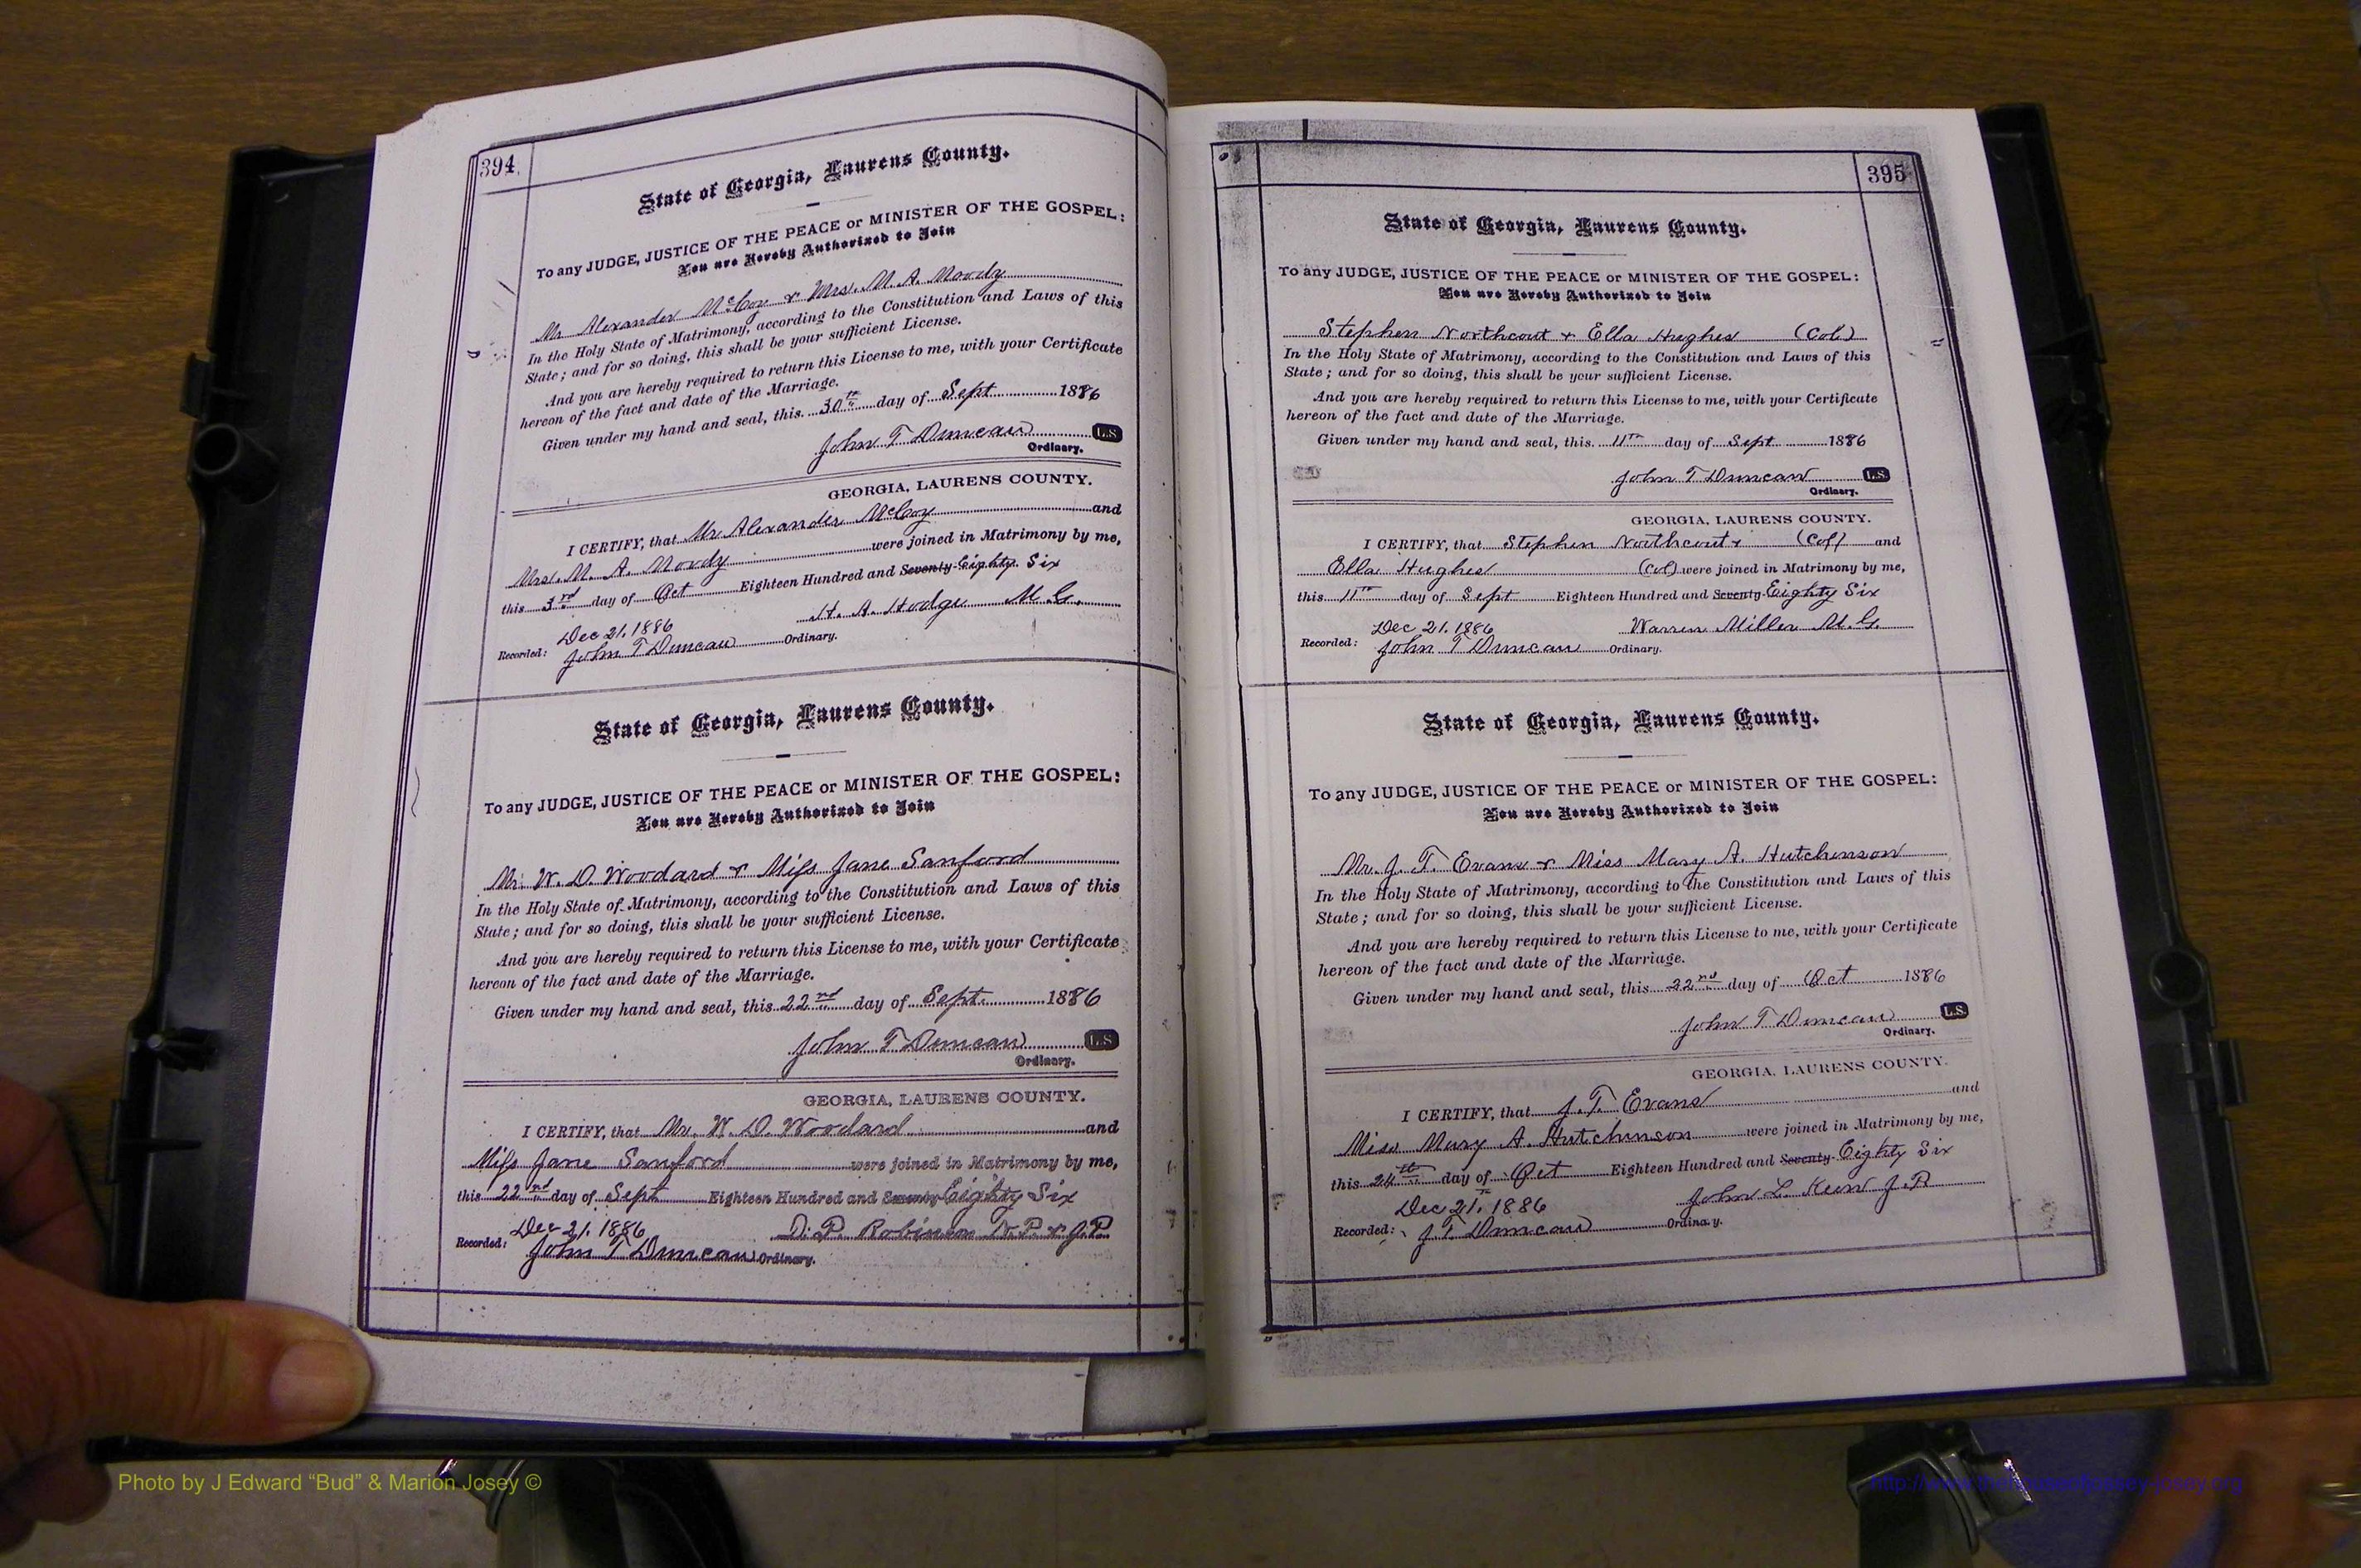 394.
State of Georgia, Laurens County.
To any JUDGE, JUSTICE OF THE PEACE or MINISTER OF THE GOSPEL:
You are Hereby Authorized to Join
Mr Alexander McCoy & Mrs. M. A. Moody
In the Holy State of Matrimony, according to the Constitution and Laws of this
State; and for so doing, this shall be your sufficient License.
And you are hereby required to return this License to me, with your Certificate
hereon of the fact and date of the Marriage.
Given under my hand and seal, this 30th day of Sept 1886
John T Duncan L.S.
Ordinary.
GEORGIA, LAURENS COUNTY.
I CERTIFY, that Mr Alexander McCoy and
Mrs. M. A. Moody were joined in Matrimony by me,
this 3rd day of Oct Eighteen Hundred and Seventy Eighty Six
H. A. Hodge M. G.
Dec 21, 1886
Recorded: John T Duncan Ordinary.
State of Georgia, Laurens County.
To any JUDGE, JUSTICE OF THE PEACE or MINISTER OF THE GOSPEL:
You are Hereby Authorized to Join
Mr. W. D. Woodard & Miss Jane Sanford
In the Holy State of Matrimony, according to the Constitution and Laws of this
State; and for so doing, this shall be your sufficient License.
And you are hereby required to return this License to me, with your Certificate
hereon of the fact and date of the Marriage.
Given under my hand and seal, this 22nd day of Sept. 1886
John T Duncan L.S.
Ordinary.
GEORGIA, LAURENS COUNTY.
I CERTIFY, that Mr. W. D. Woodard and
Miss Jane Sanford were joined in Matrimony by me,
this 22nd day of Sept Eighteen Hundred and Seventy Eighty Six
Dec 21, 1886 D. P. Robinson N.P. & J.P.
Recorded: John T Duncan Ordinary.
395
State of Georgia, Laurens County.
To any JUDGE, JUSTICE OF THE PEACE or MINISTER OF THE GOSPEL:
You are Hereby Authorized to Join
Stephen Northcout & Ella Hughes (Col)
In the Holy State of Matrimony, according to the Constitution and Laws of this
State; and for so doing, this shall be your sufficient License.
And you are hereby required to return this License to me, with your Certificate
hereon of the fact and date of the Marriage.
Given under my hand and seal, this 11th day of Sept 1886
John T Duncan L.S.
Ordinary.
GEORGIA, LAURENS COUNTY.
I CERTIFY, that Stephen Northcout (Col) and
Ella Hughes (Col) were joined in Matrimony by me,
this 11th day of Sept Eighteen Hundred and Seventy Eighty Six
Dec 21, 1886 Warren Miller M. G.
Recorded: John T Duncan Ordinary.
State of Georgia, Laurens County.
To any JUDGE, JUSTICE OF THE PEACE or MINISTER OF THE GOSPEL:
You are Hereby Authorized to Join
Mr. J. T. Evans & Miss Mary A. Hutchinson
In the Holy State of Matrimony, according to the Constitution and Laws of this
State; and for so doing, this shall be your sufficient License.
And you are hereby required to return this License to me, with your Certificate
hereon of the fact and date of the Marriage.
Given under my hand and seal, this 22nd day of Oct 1886
John T Duncan L.S.
Ordinary.
GEORGIA, LAURENS COUNTY.
I CERTIFY, that J. T. Evans and
Miss Mary A. Hutchinson were joined in Matrimony by me,
this 24th day of Oct Eighteen Hundred and Seventy Eighty Six
Dec 21, 1886 John L. Keen J.P
Recorded: J. T. Duncan Ordinary.
Photo by J Edward “Bud” & Marion Josey ©